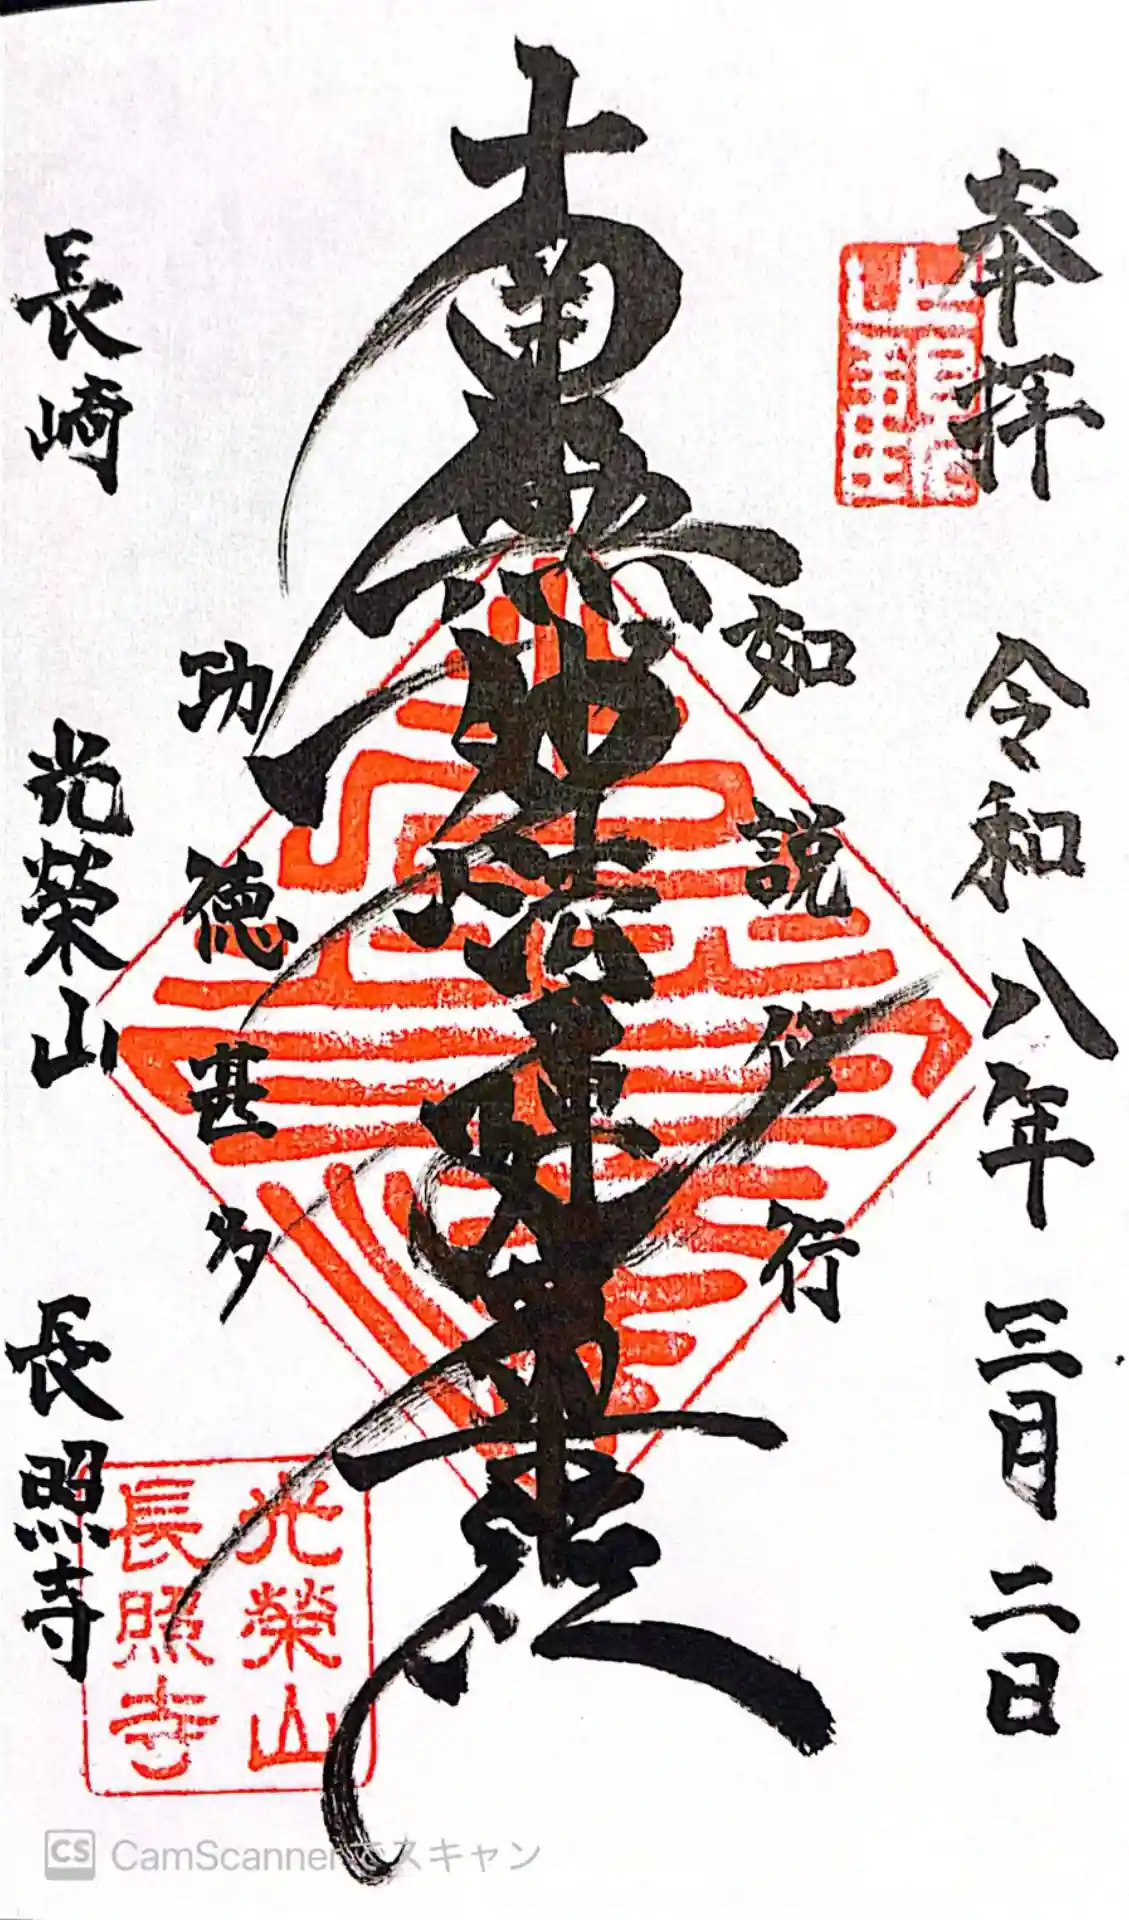 奉拝 令和八年 三月 二日
如説修行
南無妙法蓮華経
功徳甚多
長崎 光榮山 長照寺
光榮山
長照寺
CS CamScannerでスキャン